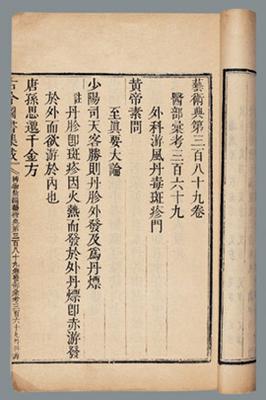 藝術典第三百八十九卷
醫部彙考三百六十九
外科游風丹毒斑疹門
黃帝素問
至眞要大論
少陽司天客勝則丹胗外發及爲丹熛
註丹胗卽斑疹因火熱而發於外丹熛卽赤游發
於外而欲游於內也
唐孫思邈千金方
古今圖書集成